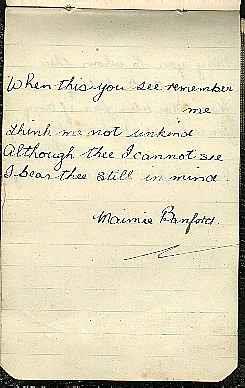 When this you see remember
me
think me not unkind
Although thee I cannot see
I bear thee still in mind.
Maimie Banford.